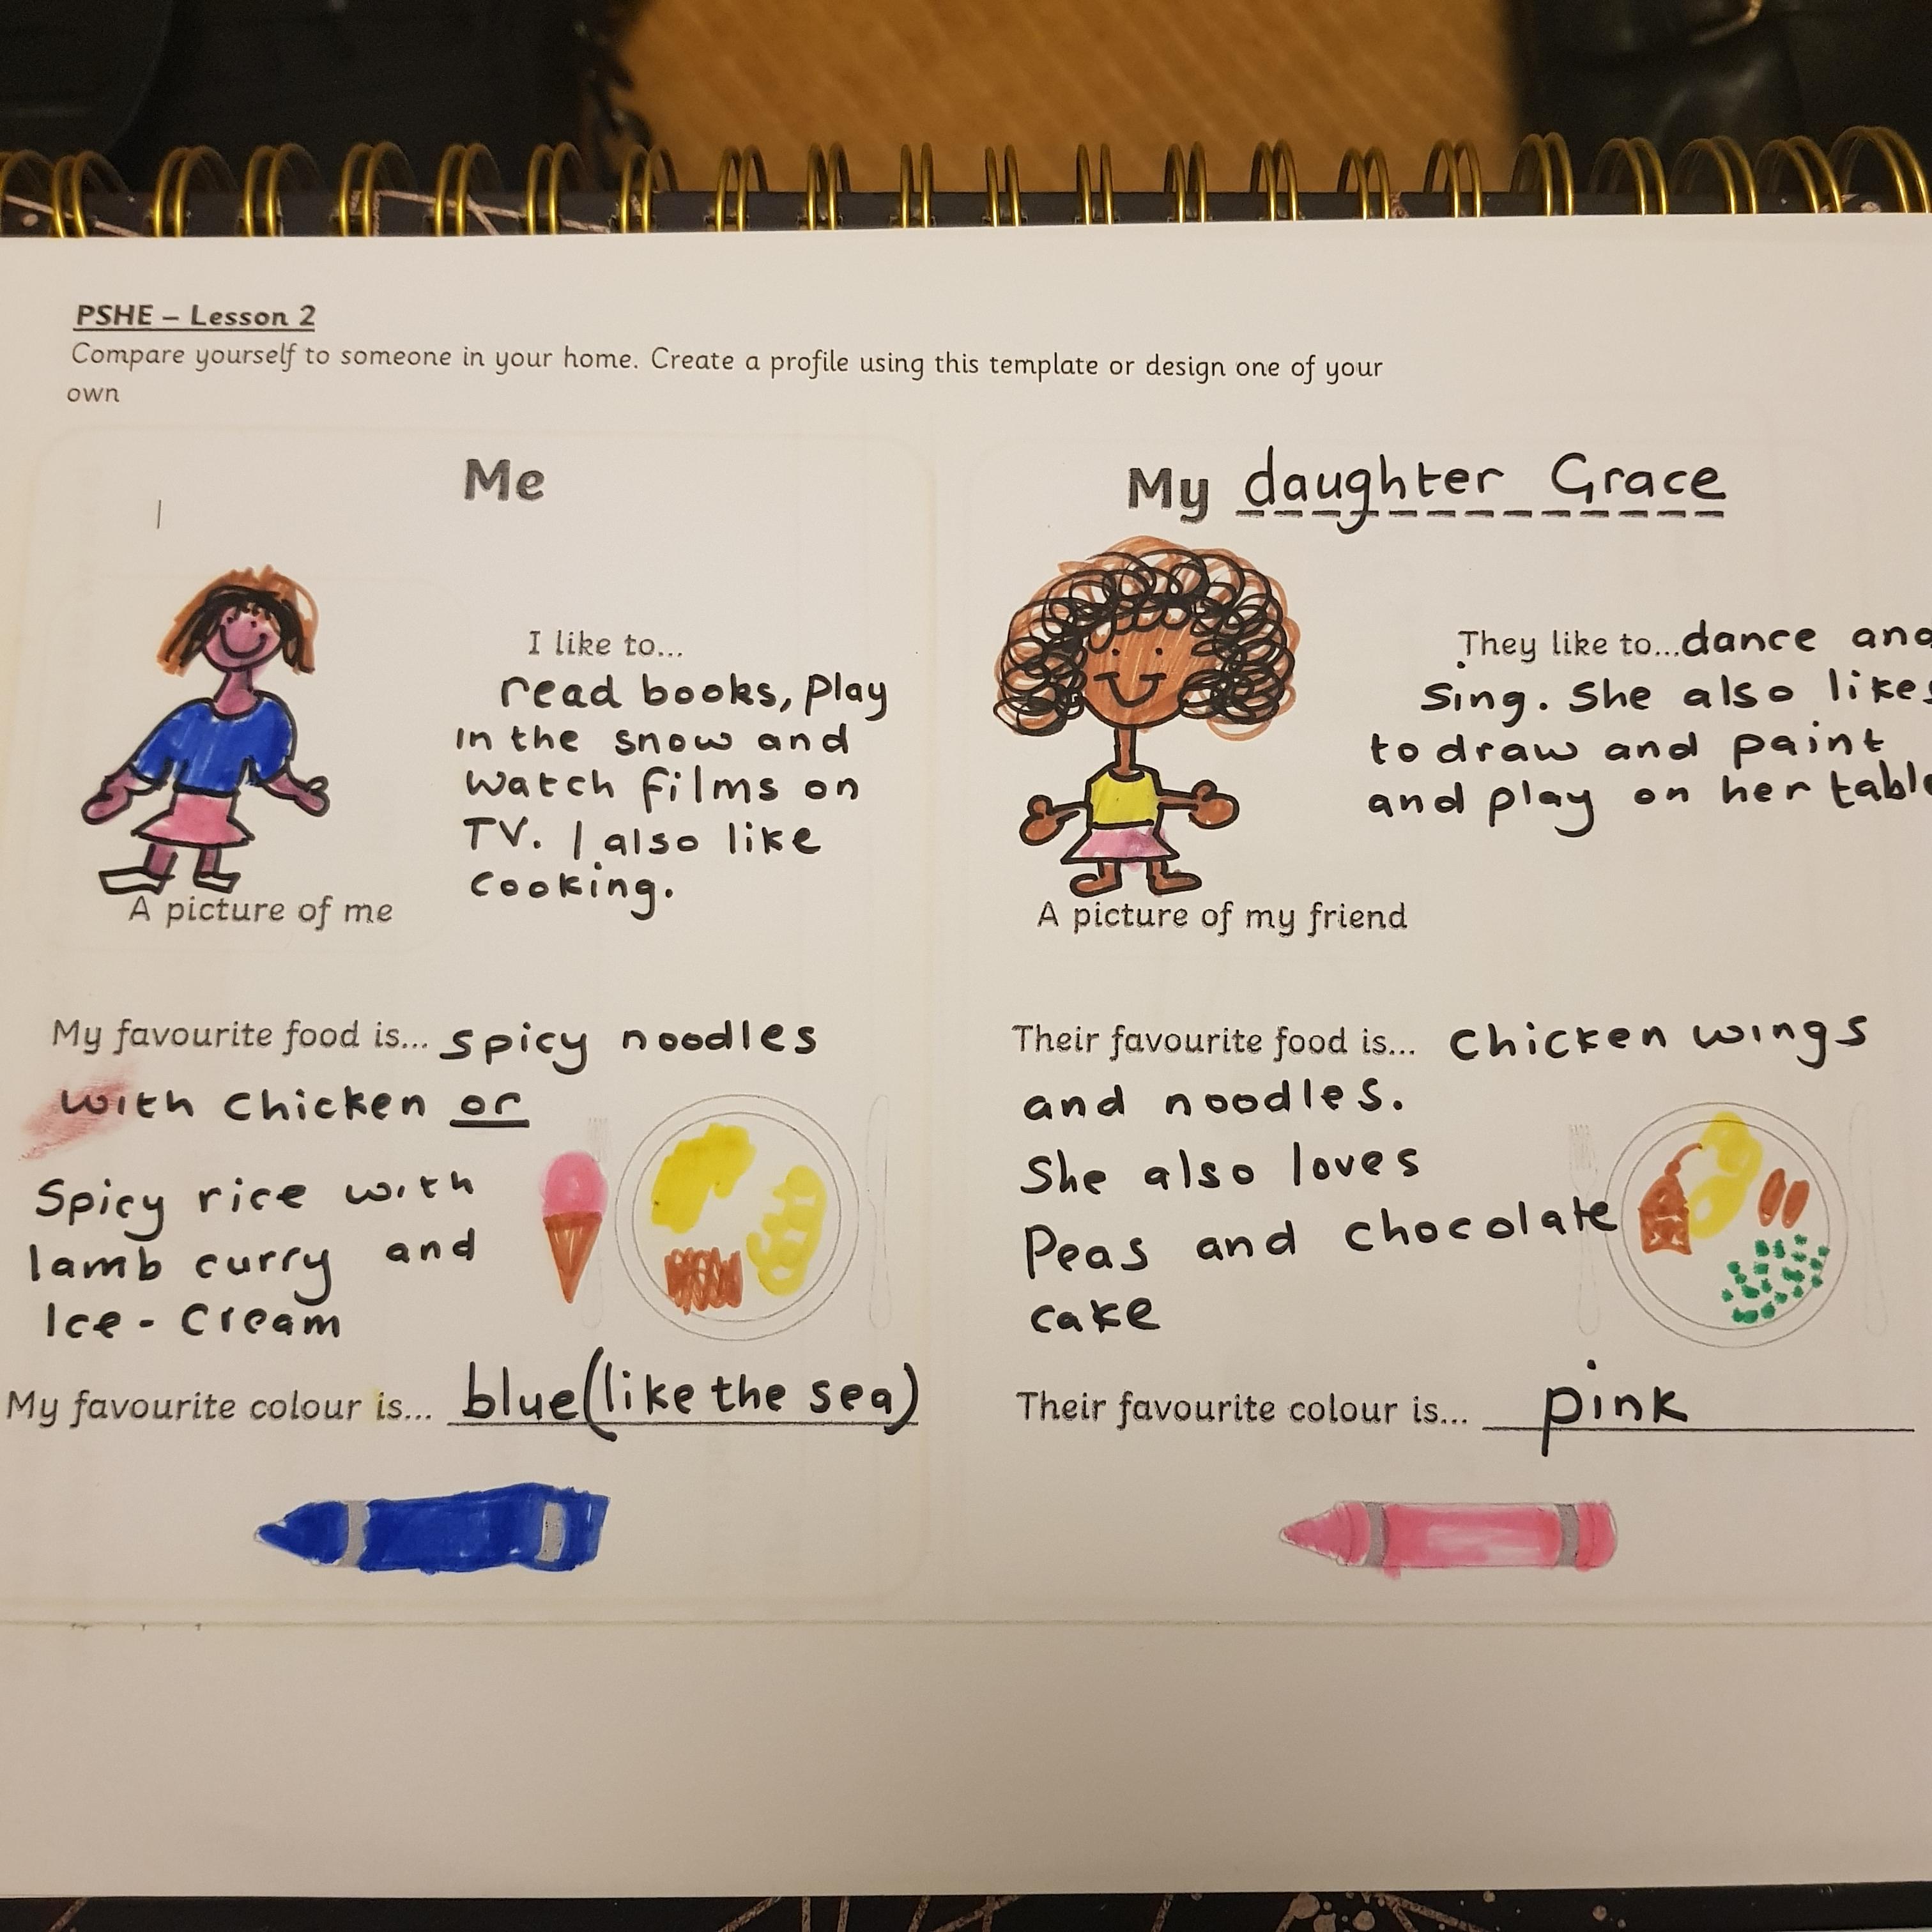 PSHE – Lesson 2
Compare yourself to someone in your home. Create a profile using this template or design one of your
own
Me
I like to...
read books, play
in the snow and
watch films on
TV. I also like
cooking.
A picture of me
My favourite food is... spicy noodles
with chicken or
Spicy rice with
lamb curry and
Ice-cream
My favourite colour is... blue (like the sea)
My daughter Grace
They like to... dance and
sing. She also likes
to draw and paint
and play on her table
A picture of my friend
Their favourite food is... chicken wings
and noodles.
She also loves
Peas and chocolate
cake
Their favourite colour is... pink